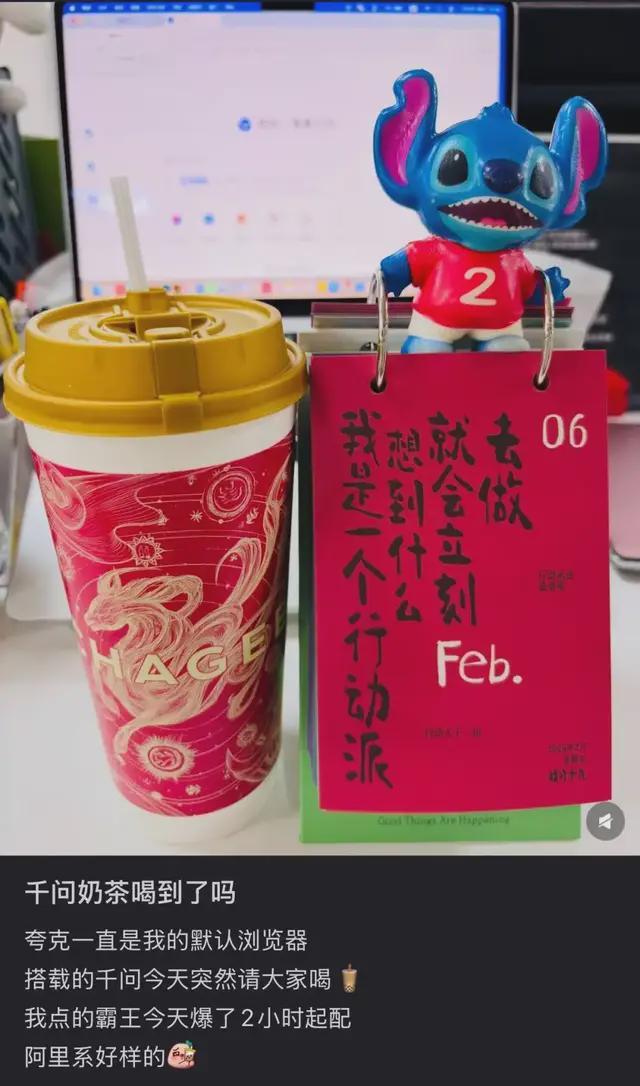 2
CHAGEE
06
我是一个行动派
想到什么
就会立刻
去做
Feb.
Good Things Are Happening
千问奶茶喝到了吗
夸克一直是我的默认浏览器
搭载的千问今天突然请大家喝🧋
我点的霸王今天爆了2小时起配
阿里系好样的